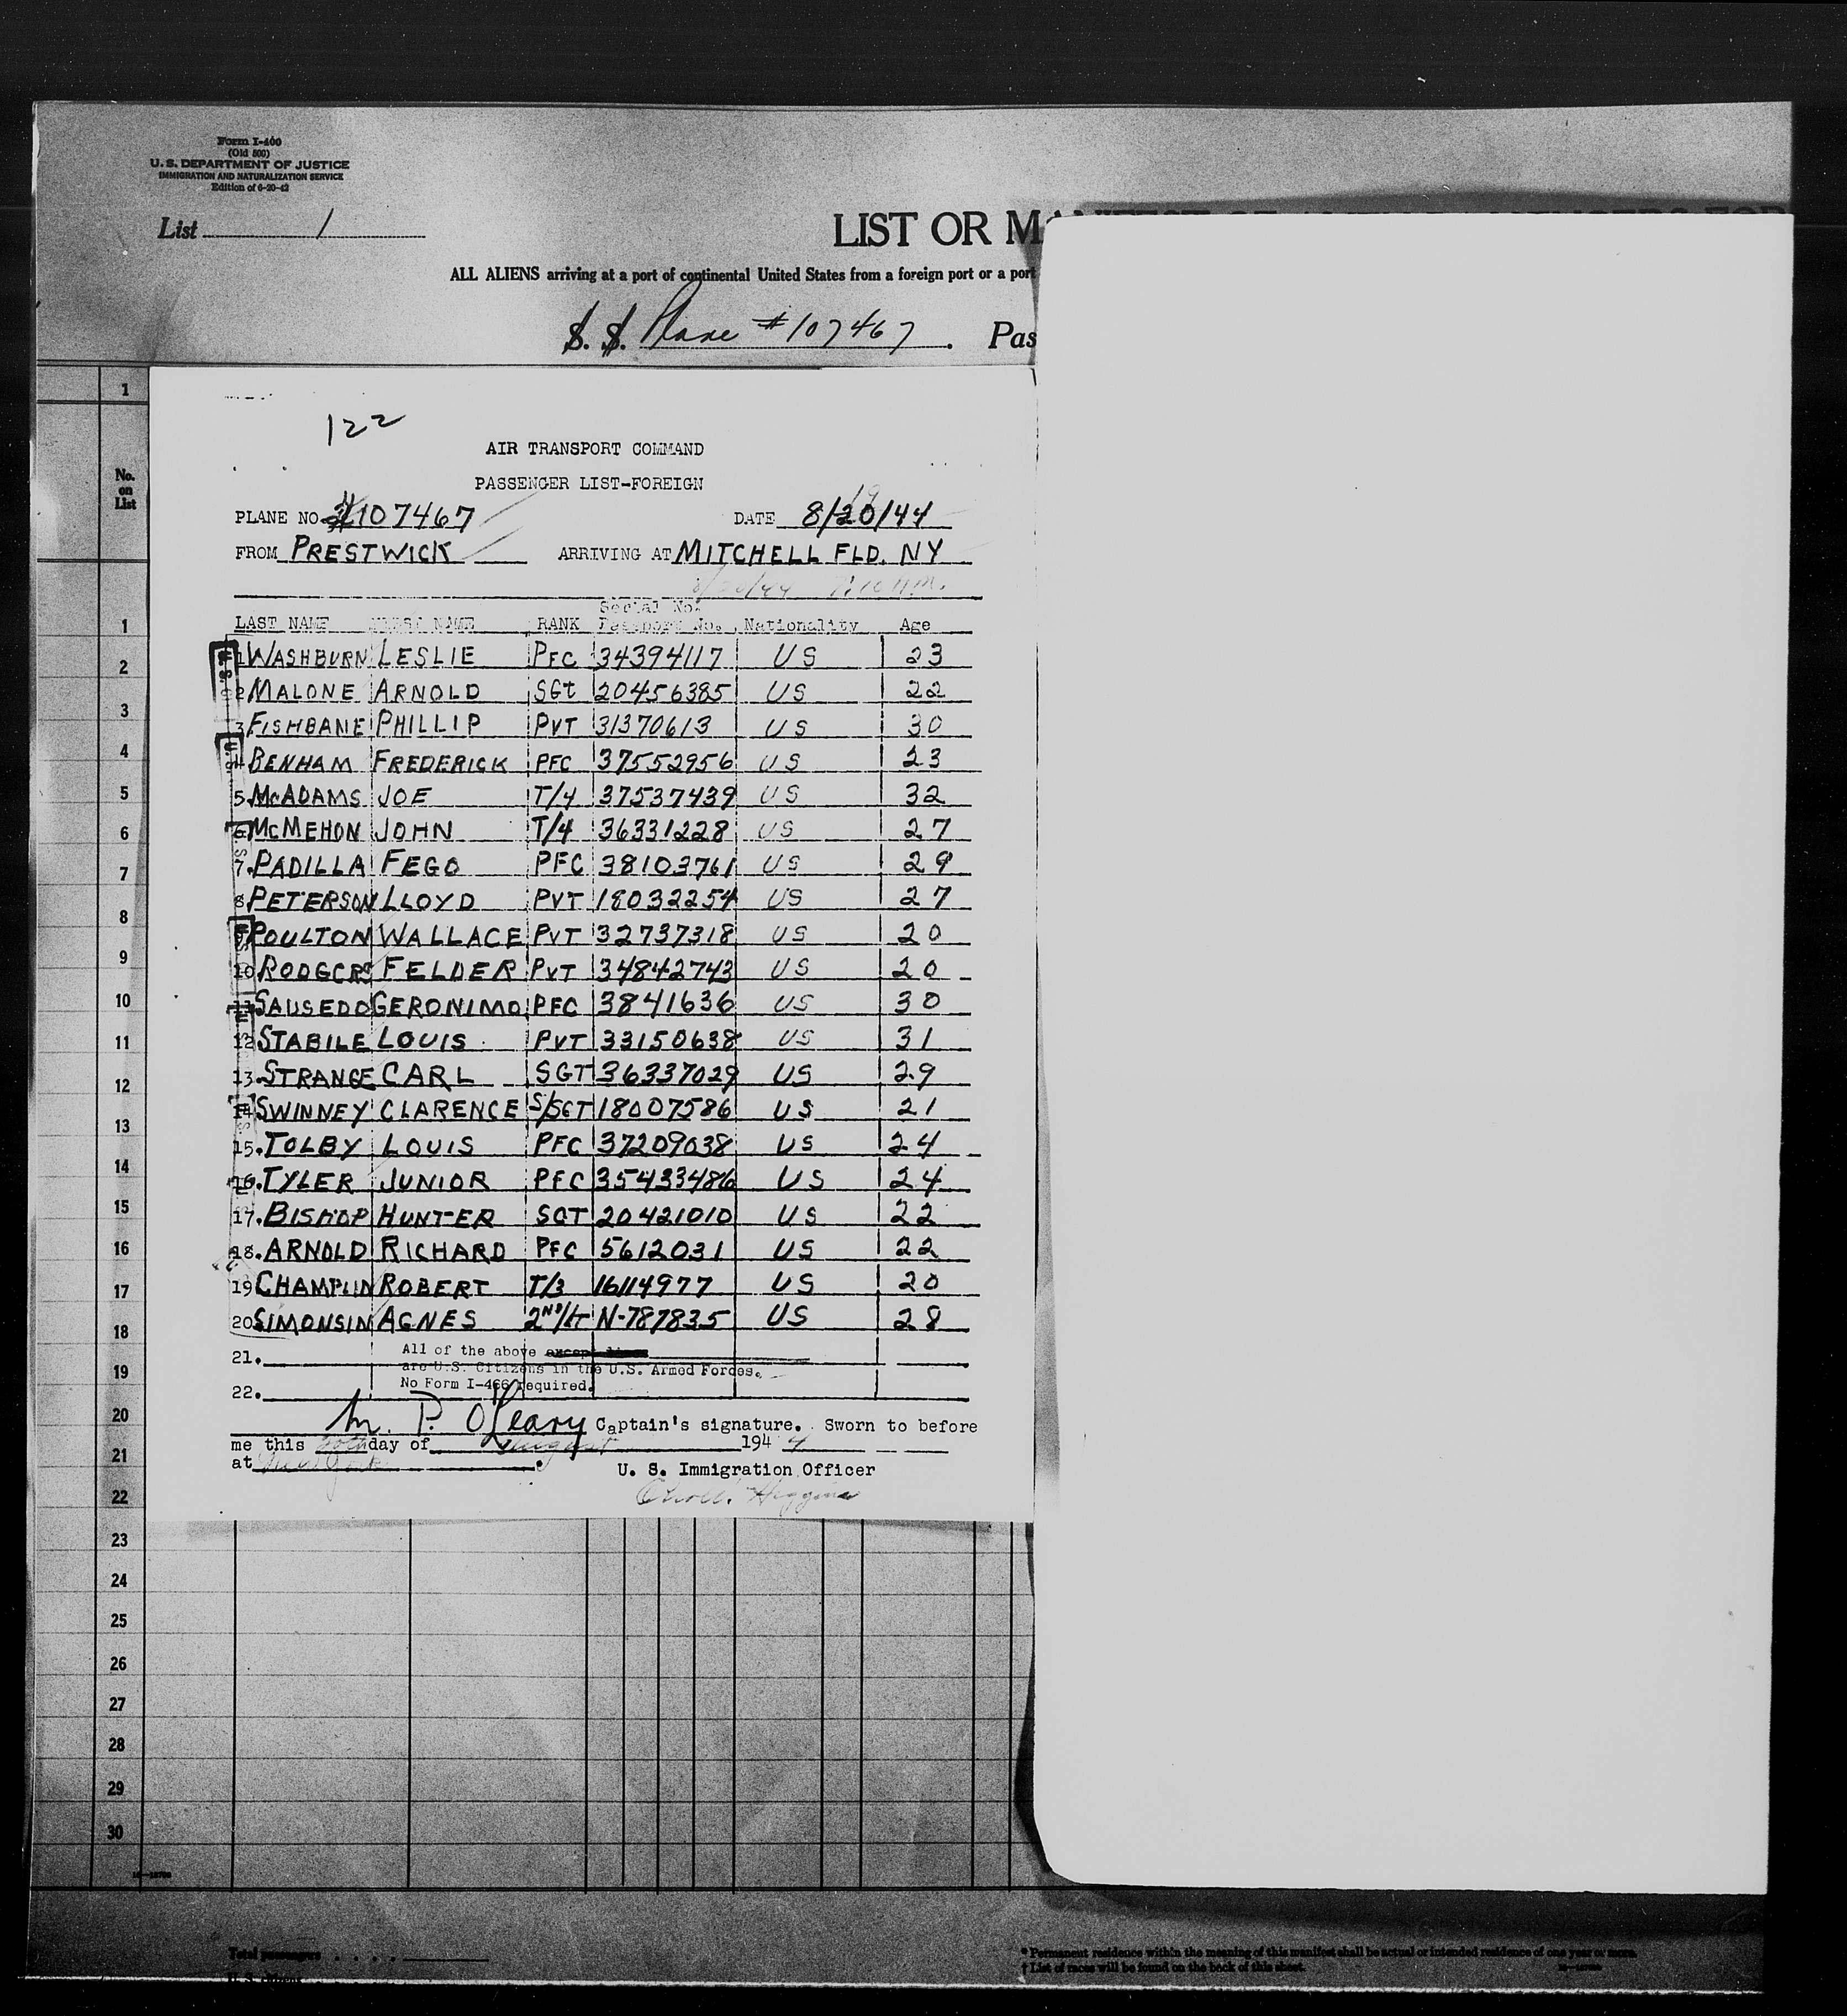 Form I-400
(Old 500)
U. S. DEPARTMENT OF JUSTICE
IMMIGRATION AND NATURALIZATION SERVICE
Edition of 6-20-42
List 1
LIST OR M
ALL ALIENS arriving at a port of continental United States from a foreign port or a port
S. S. Plane #107467. Pas
122
AIR TRANSPORT COMMAND
PASSENGER LIST-FOREIGN
PLANE NO 107467 DATE 8/20/44 19
FROM PRESTWICK ARRIVING AT MITCHELL FLD. NY
8/20/44
No. on List
LAST NAME FIRST NAME RANK Serial No. Passport No. Nationality Age
1 WASHBURN LESLIE PFC 34394117 US 23
2 MALONE ARNOLD SGt 20456385 US 22
3 FISHBANE PHILLIP PVT 31370613 US 30
4 BENHAM FREDERICK PFC 37552956 US 23
5. McADAMS JOE T/4 37537439 US 32
6. McMEHON JOHN T/4 36331228 US 27
7. PADILLA FEGO PFC 38103761 US 29
8 PETERSON LLOYD PVT 18032254 US 27
9 POULTON WALLACE PVT 32737318 US 20
10 RODGERS FELDER PVT 34842743 US 20
11 SAUSEDO GERONIMO PFC 3841636 US 30
12 STABILE LOUIS PVT 33150638 US 31
13. STRANGE CARL SGT 36337029 US 29
14 SWINNEY CLARENCE S/SGT 18007586 US 21
15. TOLBY LOUIS PFC 37209038 US 24
16. TYLER JUNIOR PFC 35433486 US 24
17. BISHOP HUNTER SGT 20421010 US 22
18. ARNOLD RICHARD PFC 5612031 US 22
19 CHAMPLIN ROBERT T/3 16114977 US 20
20 SIMONSIN AGNES 2ND/LT N-787835 US 28
21. All of the above except lines
are U.S. Citizens in the U.S. Armed Forces.
No Form I-466 required.
22.
M. P. O'Leary Captain's signature. Sworn to before
me this 20th day of August 1944
at New York.
U. S. Immigration Officer
Higgins
1
1
2
3
4
5
6
7
8
9
10
11
12
13
14
15
16
17
18
19
20
21
22
23
24
25
26
27
28
29
30
Total passengers
U. S. citizens
* Permanent residence within the meaning of this manifest shall be actual or intended residence of one year or more.
† List of races will be found on the back of this sheet.